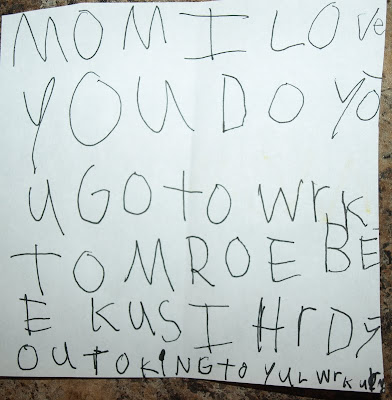 MOM I LOVe
YOU DO YO
U GO TO WrK
TOMROE BE
E KUS I HrD Y
OU TOKING TO YUL WrKUrS